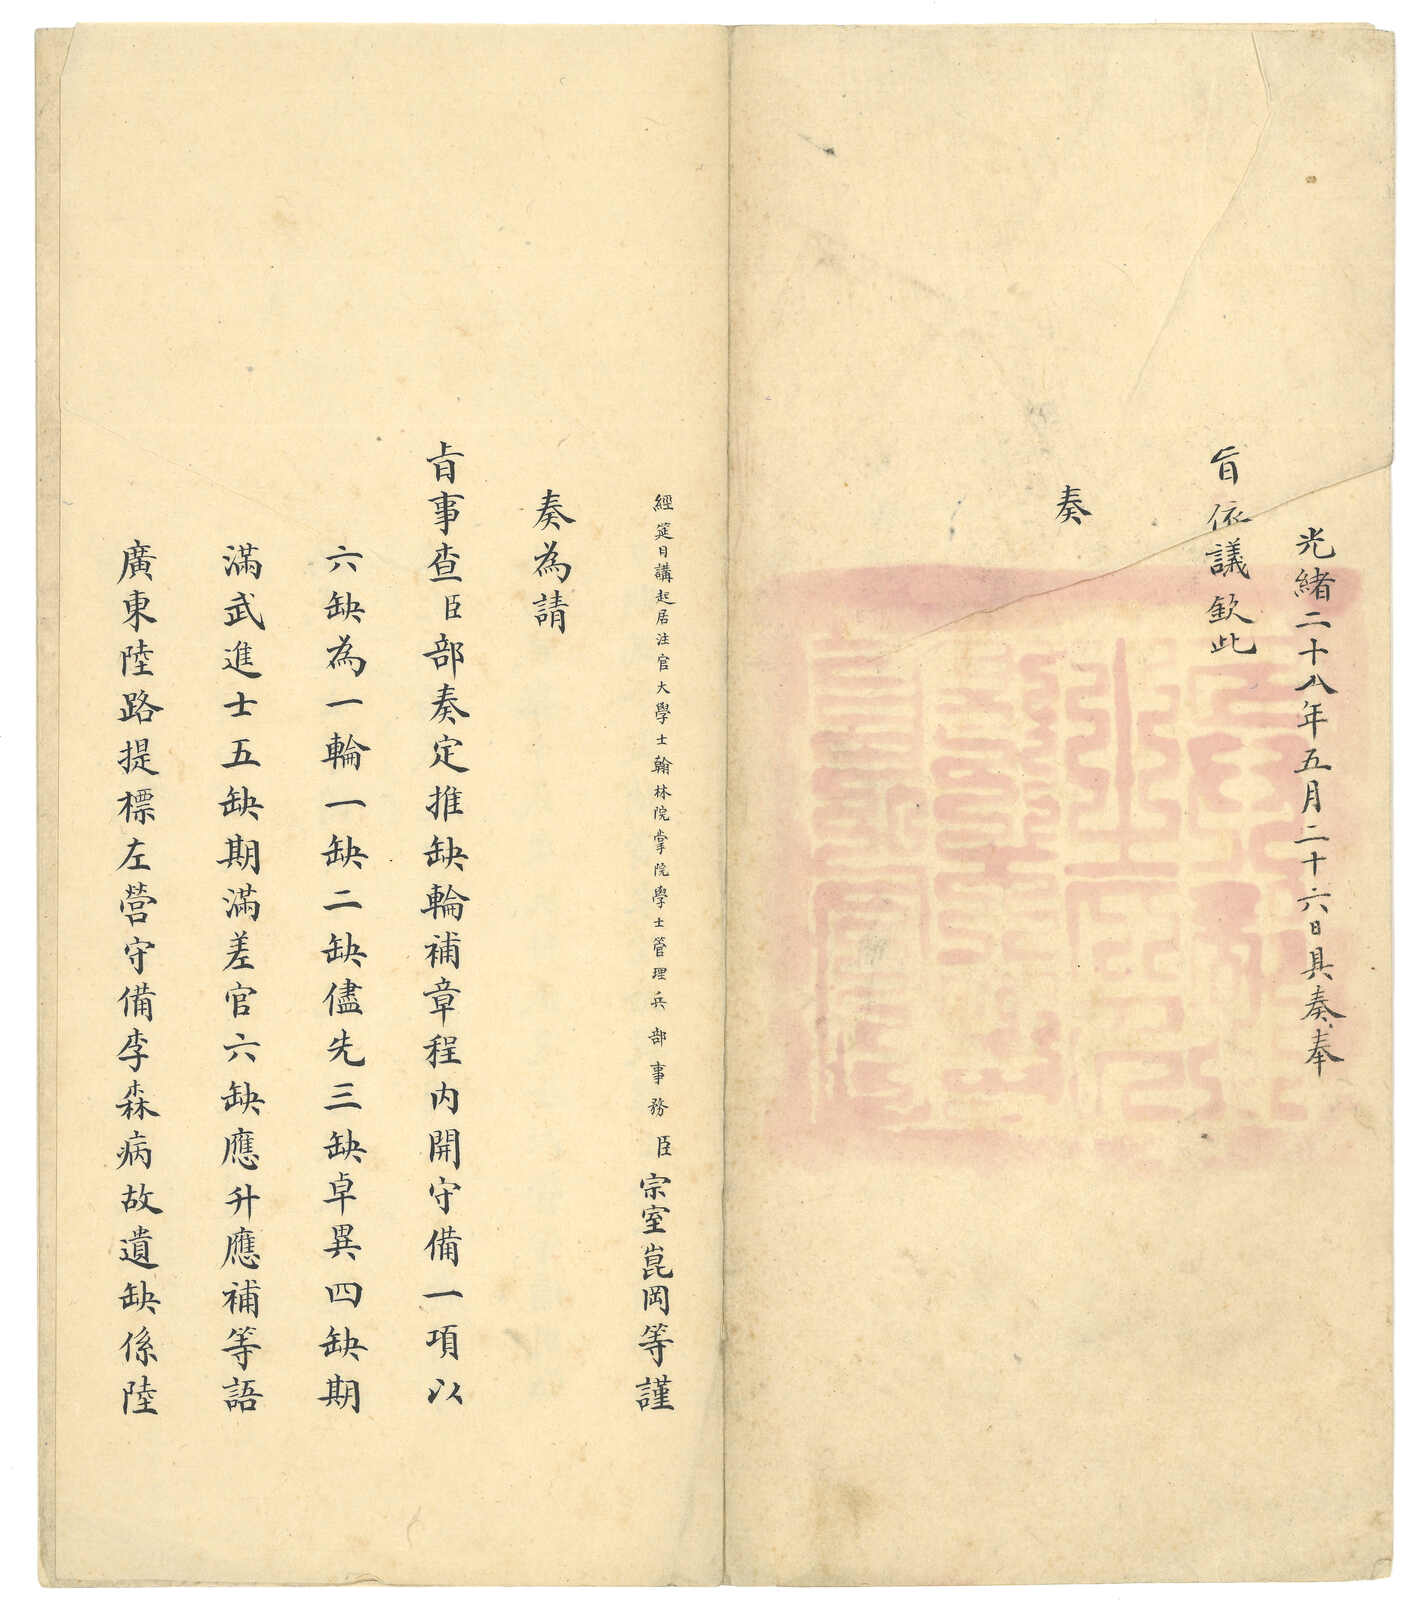 光緒二十八年五月二十六日具奏奉
旨依議欽此
奏
經筵日講起居注官大學士翰林院掌院學士管理兵部事務臣宗室崑岡等謹
奏為請
旨事查臣部奏定推缺輪補章程內開守備一項以
六缺為一輪一缺二缺儘先三缺卓異四缺期
滿武進士五缺期滿差官六缺應升應補等語
廣東陸路提標左營守備李森病故遺缺係陸